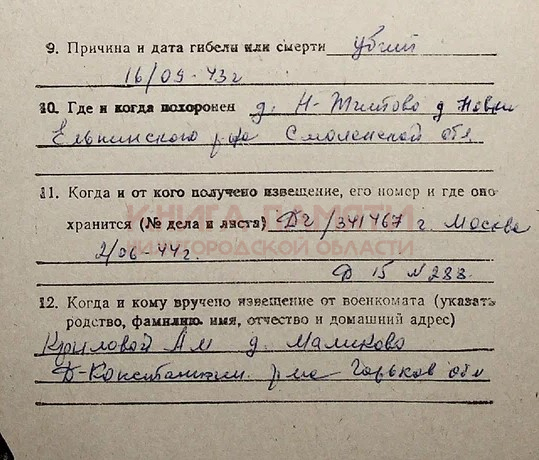 9. Причина и дата гибели или смерти убит
16/09-43г
10. Где и когда похоронен д. Н-
Ельнинского р-на Смоленской обл
11. Когда и от кого получено извещение, его номер и где оно
хранится (№ дела и листа) Дг/341467 г. Москва
КНИГА ПАМЯТИ
НИЖЕГОРОДСКОЙ ОБЛАСТИ
2/06-44г.
Д 15 N 288
12. Когда и кому вручено извещение от военкомата (указать
родство, фамилию, имя, отчество и домашний адрес)
Крыловой А М д. Маликово
Д-Константин. р-на Горьков обл